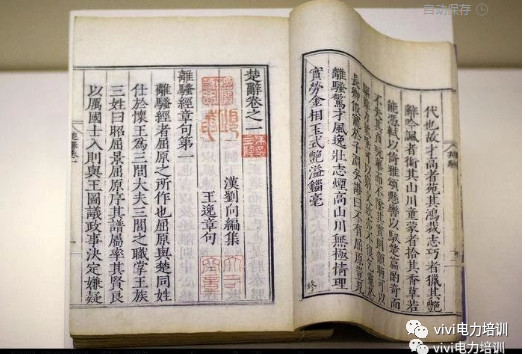 自动保存
代也故才高者苑其鴻裁志巧者獵其艷
辭吟諷者銜其山川童蒙者拾其香草若
能憑軾以倚雅頌懸轡以馭楚篇酌奇而
不有屈原豈見
離騷驚才風逸壯志煙高山川無極情理
實勞金相玉式艷溢錙毫
楚辭卷之一
漢劉向編集
王逸章句
離騷經章句第一
離騷經者屈原之所作也屈原與楚同姓
仕於懷王為三閭大夫三閭之職掌王族
三姓曰昭屈景屈原序其譜屬率其賢良
以厲國士入則與王圖議政事決定嫌疑
vivi电力培训
vivi电力培训